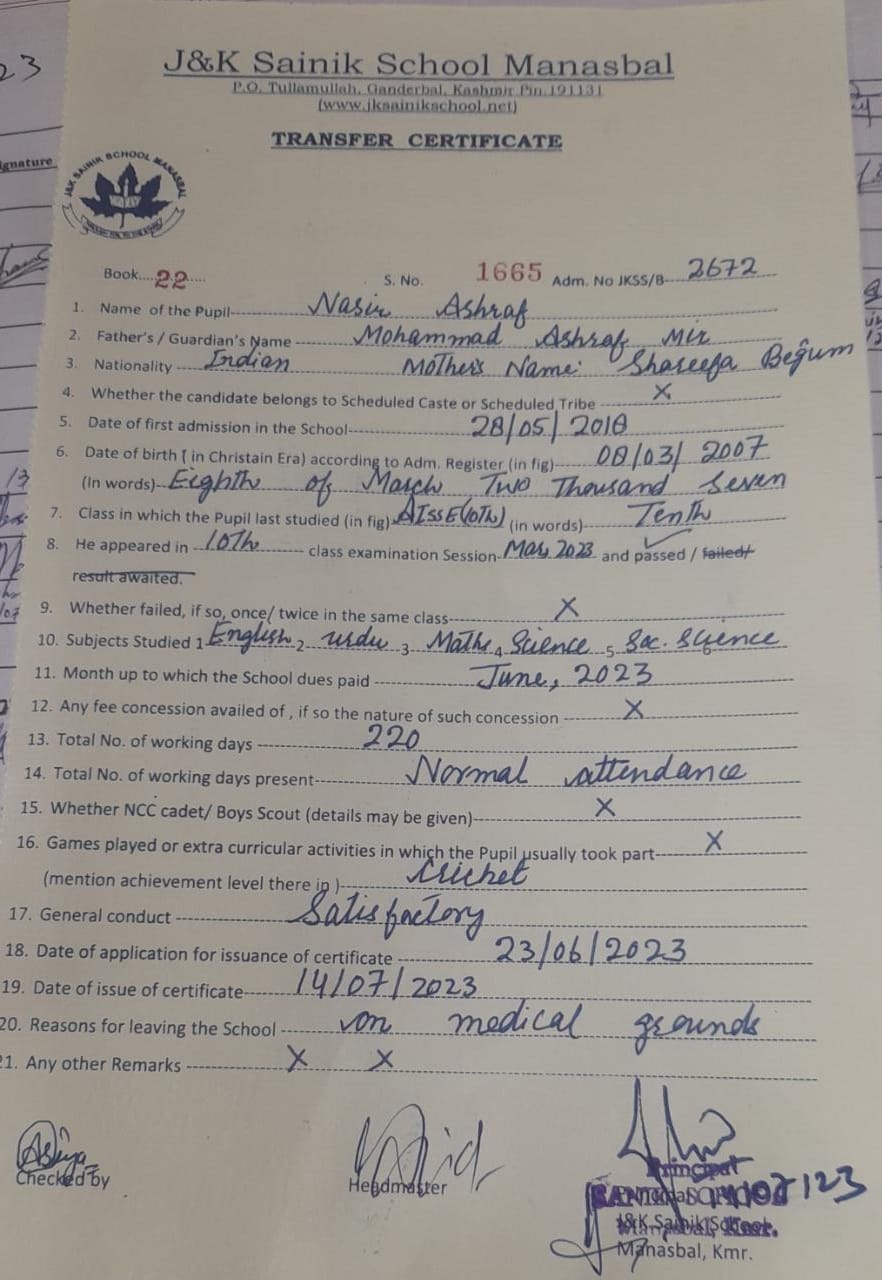 23
J&K Sainik School Manasbal
P.O. Tullamullah, Ganderbal, Kashmir Pin.191131
(www.jksainikschool.net)
TRANSFER CERTIFICATE
ignature
J&K SAINIK SCHOOL MANASBAL
Book....22..... S. No. 1665 Adm. No JKSS/B- 2672
1. Name of the Pupil Nasir Ashraf
2. Father's / Guardian's Name Mohammad Ashraf Mir
3. Nationality Indian Mother's Name: Shareefa Begum
4. Whether the candidate belongs to Scheduled Caste or Scheduled Tribe X
5. Date of first admission in the School 28/05/2018
6. Date of birth ( in Christain Era) according to Adm. Register (in fig) 08/03/2007
(In words) Eighth of March Two Thousand Seven
7. Class in which the Pupil last studied (in fig) AISSE(10Th) (in words) Tenth
8. He appeared in 10Th class examination Session- Mar, 2023 and passed / failed/
result awaited.
9. Whether failed, if so, once/ twice in the same class X
10. Subjects Studied 1 English 2 urdu 3 Maths 4 Science 5 Soc. Science 6
11. Month up to which the School dues paid June, 2023
12. Any fee concession availed of , if so the nature of such concession X
13. Total No. of working days 220
14. Total No. of working days present Normal attendance
15. Whether NCC cadet/ Boys Scout (details may be given) X
16. Games played or extra curricular activities in which the Pupil usually took part X
(mention achievement level there in ) Cricket
17. General conduct Satisfactory
18. Date of application for issuance of certificate 23/06/2023
19. Date of issue of certificate 14/07/2023
20. Reasons for leaving the School on medical grounds
21. Any other Remarks X X
Asiya
Checked by
Headmaster
Principal
J&K Sainik School
Manasbal, Kmr.